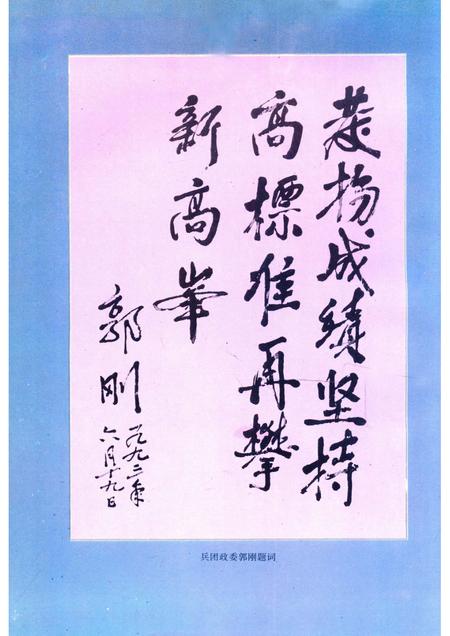 发扬成绩坚持
高标准再攀
新高峰
郭刚
一九九二年
六月十九日
兵团政委郭刚题词